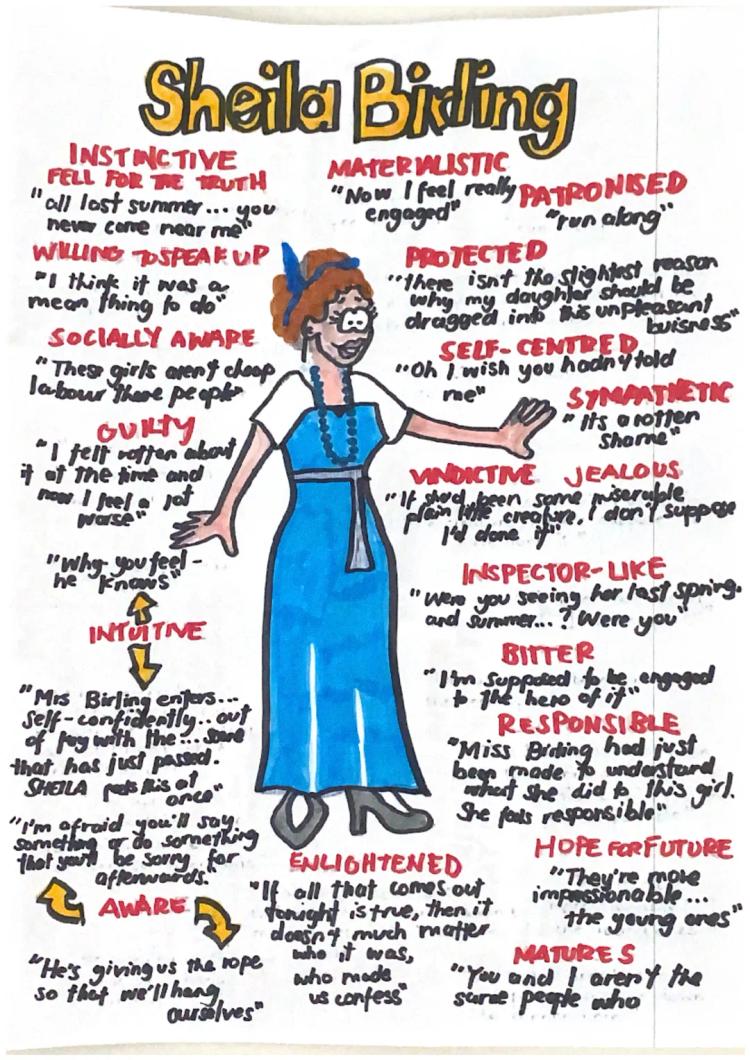 Sheila Birling
INSTINCTIVE
FELL FOR THE TRUTH
"all last summer... you
never came near me"
WILLING TO SPEAK UP
"I think it was a
mean thing to do"
SOCIALLY AWARE
"These girls aren't cheap
labour there people"
GUILTY
"I felt rotten about
it at the time and
now I feel a lot
worse"
"Why - you feel -
he knows"
INTUITIVE
"Mrs Birling enters...
self-confidently.. out
of key with the... scene
that has just passed.
SHEILA feels this at
once"
"I'm afraid you'll say
something or do something
that you'll be sorry for
afterwards."
AWARE
"He's giving us the rope
so that we'll hang
ourselves"
MATERIALISTIC
"Now I feel really
engaged"
PATRONISED
"run along"
PROTECTED
"there isn't the slightest reason
why my daughter should be
dragged into this unpleasant
buisness"
SELF-CENTRED
"Oh I wish you hadn't told
me"
SYMPATHETIC
"It's a rotten
shame"
VINDICTIVE JEALOUS
"If she'd been some miserable
plain little creature, I don't suppose
I'd done it"
INSPECTOR-LIKE
"Were you seeing her last spring.
and summer...? Were you"
BITTER
"I'm supposed to be engaged
to the hero of it"
RESPONSIBLE
"Miss Birling had just
been made to understand
what she did to this girl.
She feels responsible"
HOPE FOR FUTURE
"They're more
impressionable...
the young ones"
MATURES
"You and I aren't the
same people who
ENLIGHTENED
"If all that comes out
tonight is true, then it
doesn't much matter
who it was,
who made
us confess"